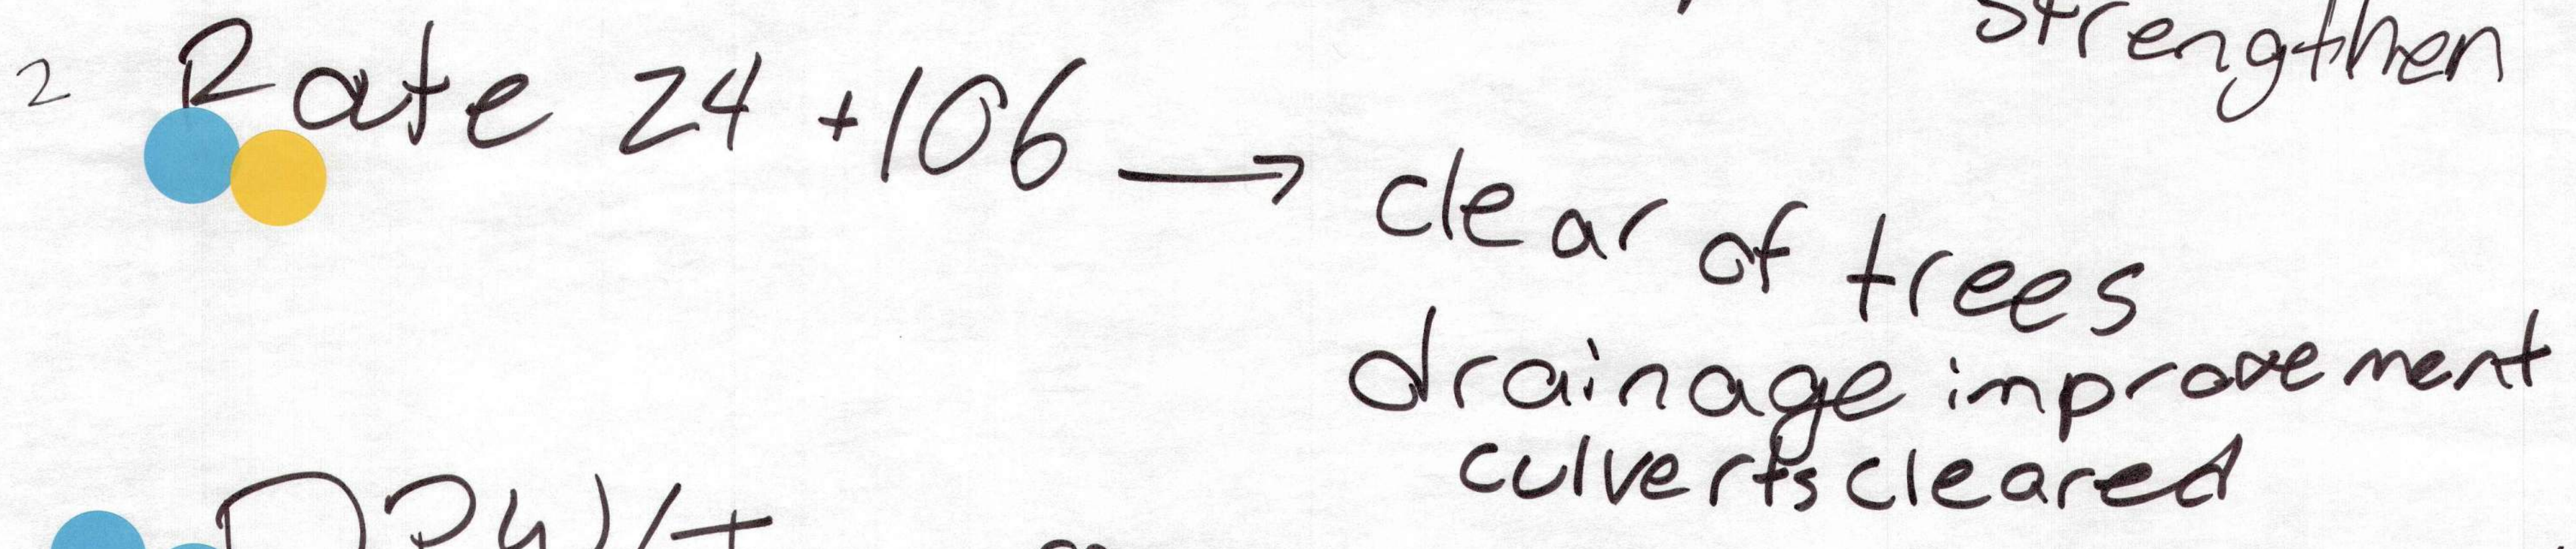 strengthen
2 Rate 24 +106 →
clear of trees
drainage improvement
culverts cleared